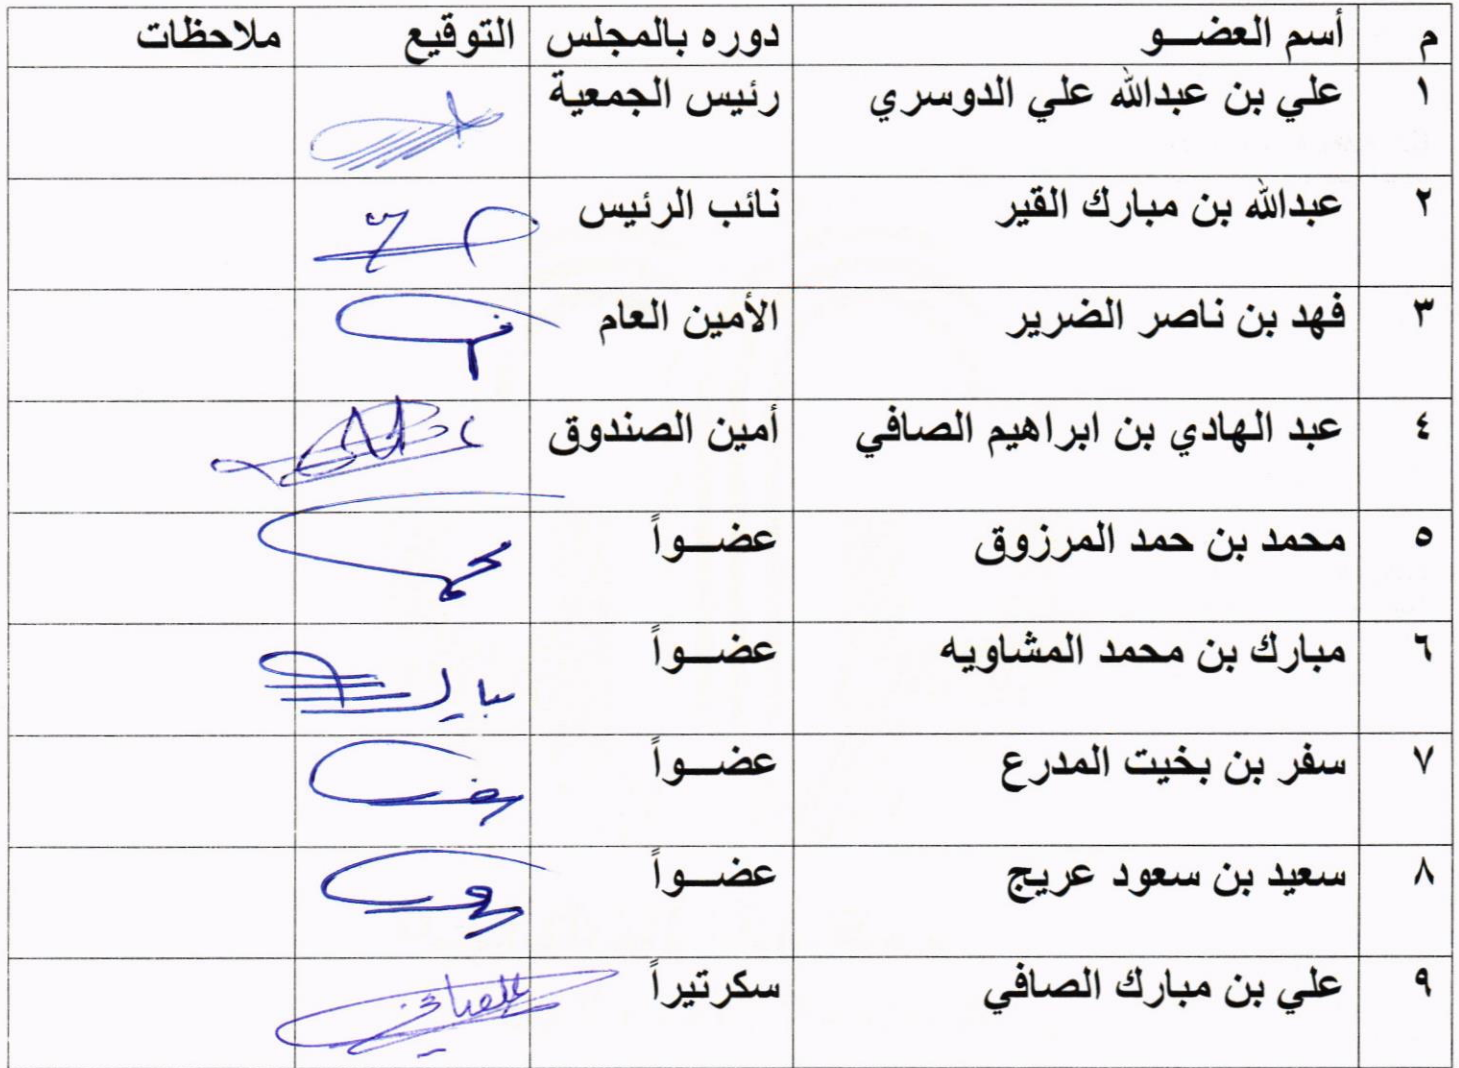 م أسم العضـــو دوره بالمجلس التوقيع ملاحظات
١ علي بن عبدالله علي الدوسري رئيس الجمعية
٢ عبدالله بن مبارك القير نائب الرئيس
٣ فهد بن ناصر الضرير الأمين العام
٤ عبد الهادي بن ابراهيم الصافي أمين الصندوق
٥ محمد بن حمد المرزوق عضـــواً
٦ مبارك بن محمد المشاويه عضـــواً
٧ سفر بن بخيت المدرع عضـــواً
٨ سعيد بن سعود عريج عضـــواً
٩ علي بن مبارك الصافي سكرتيراً